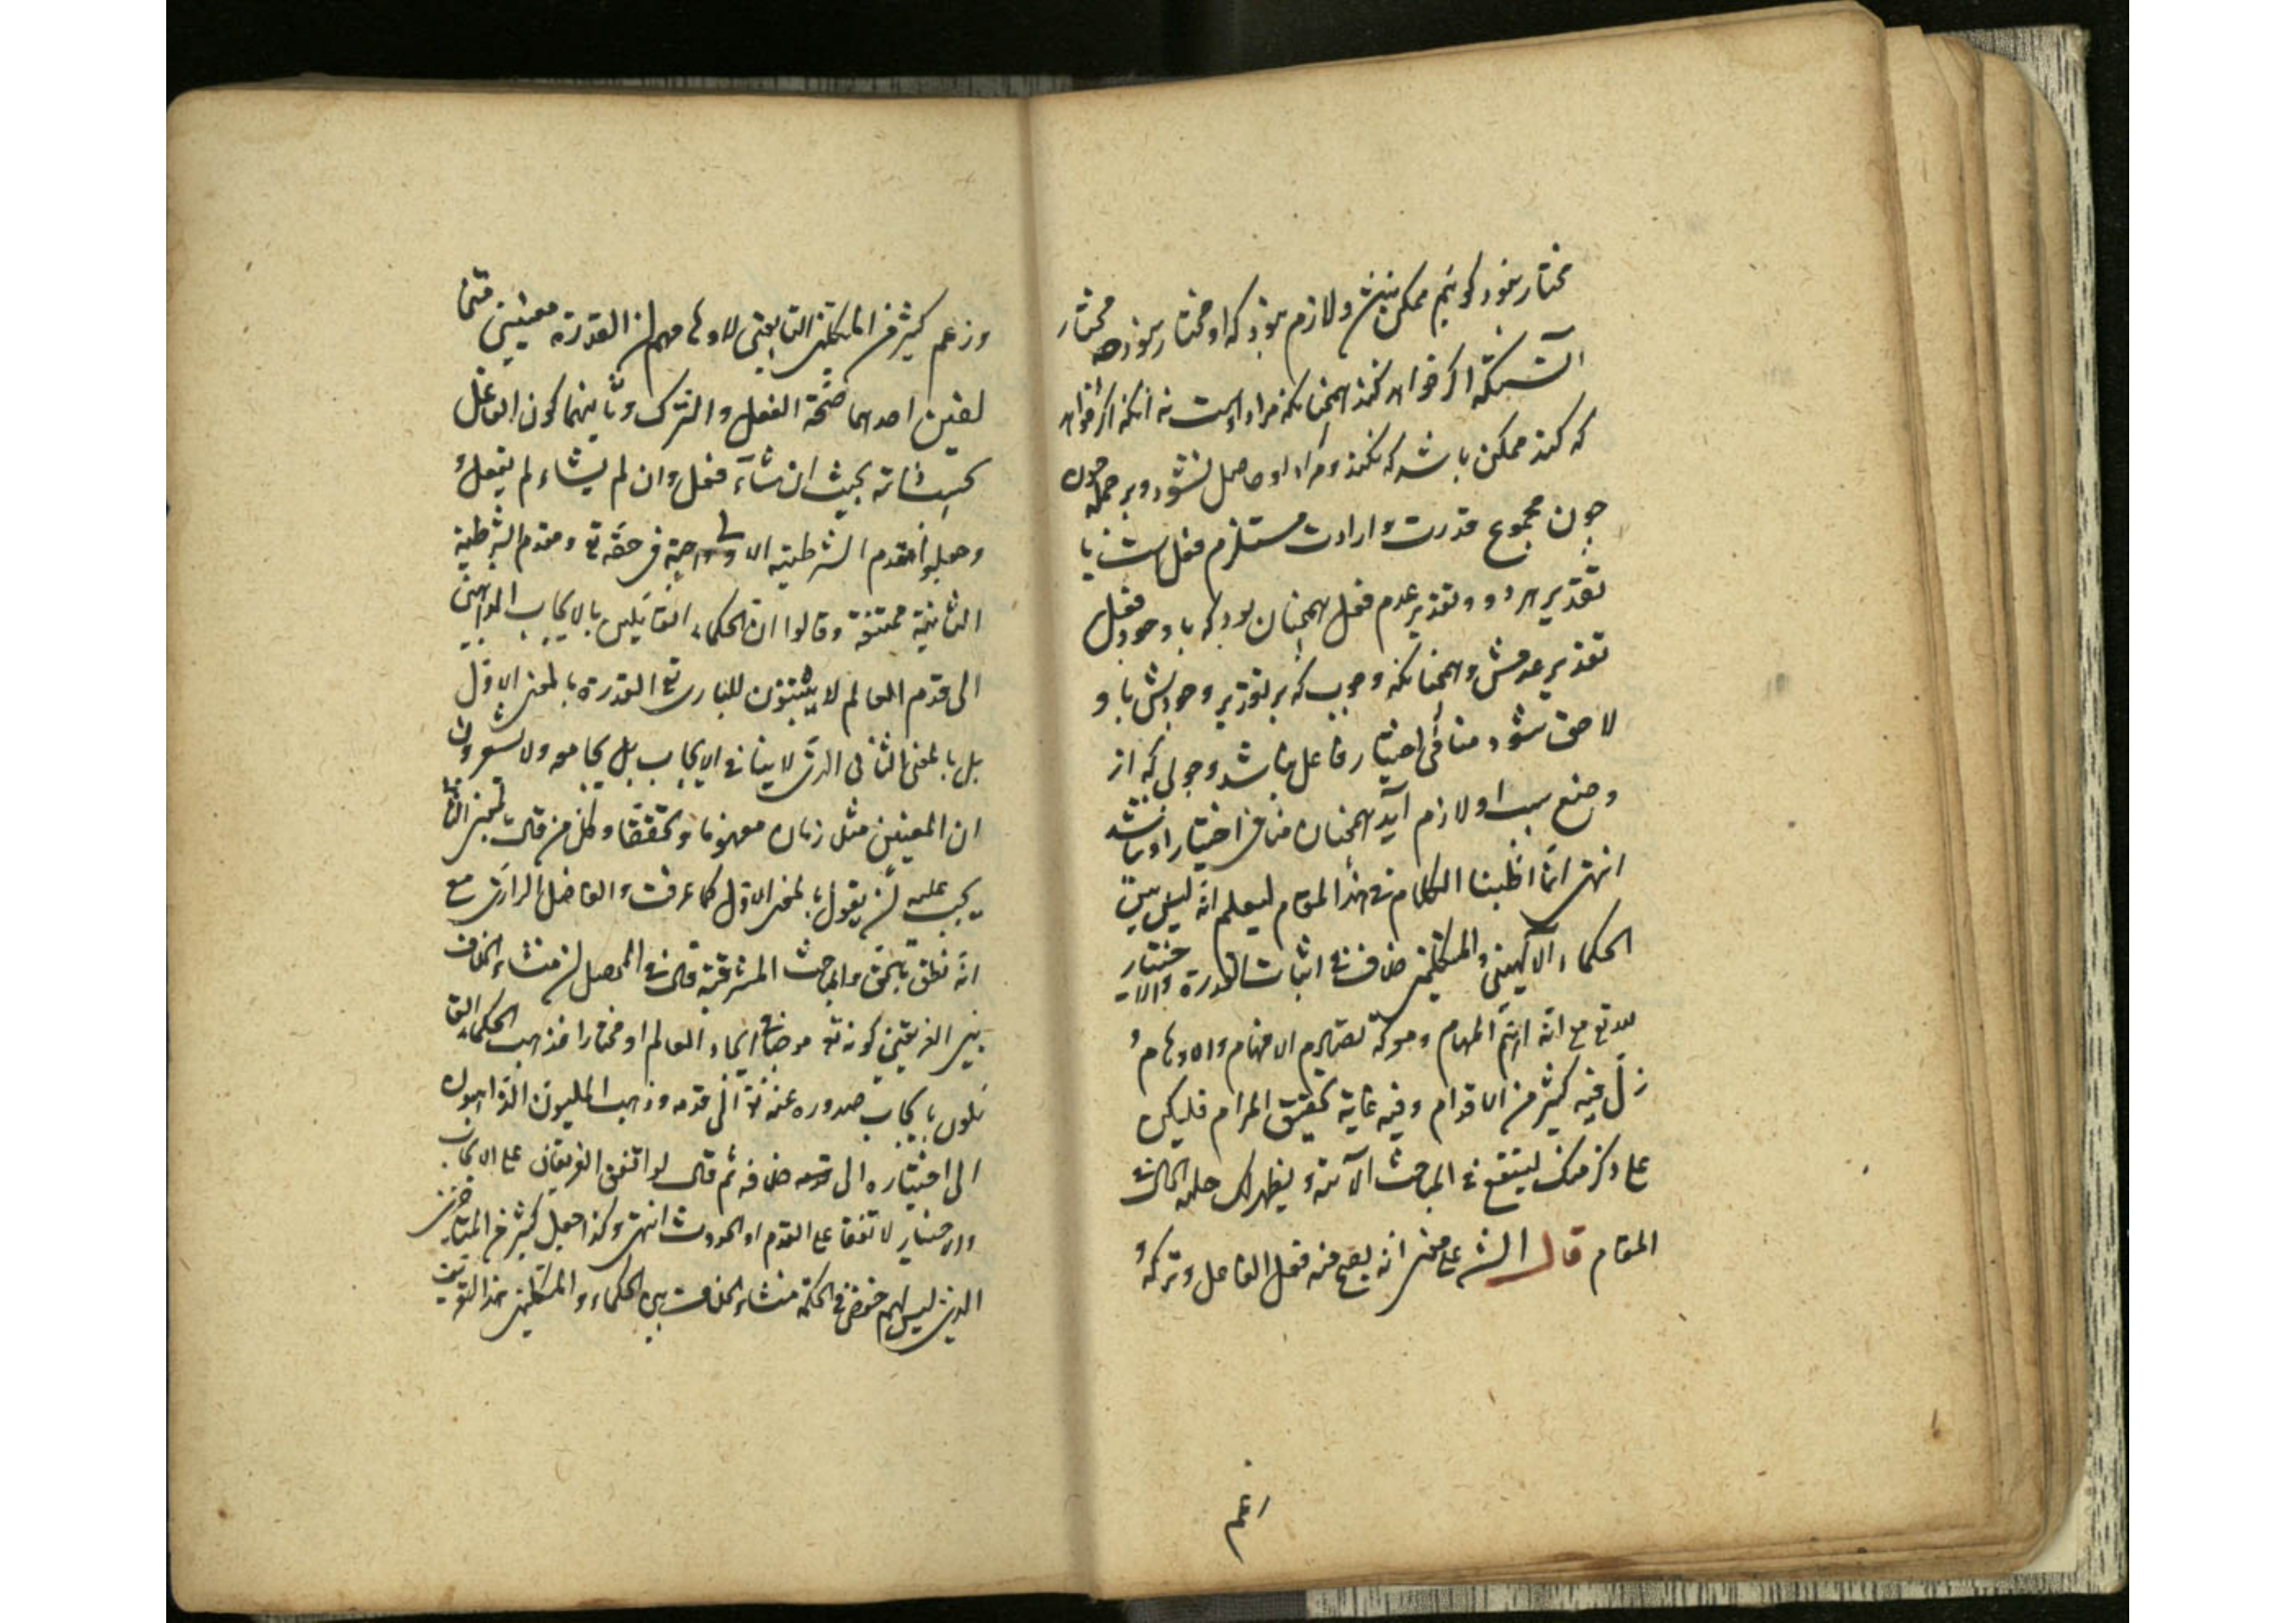 مختار نبود کوئیم ممکن نیست ولازم نبود که او مختار نبود چه مختار
آنستکه اکر خواهد کند همچنانکه مراد اوست نه آنکه اکر خواهد
که کند ممکن باشد که نکند ومراد او حاصل نشود وبر جمله چون
چون مجموع قدرت وارادت مستلزم فعل است با
تقدیر هر دو وتقدیر عدم فعل همچنان بود که با وجود فعل
تقدیر عدمش وهمچنانکه وجوب که بر تقدیر وجودش باو
لاحق شود منافی اختیار فاعل نباشد وجوبی که از
وضع سبب او لازم آید همچنان منافی اختیار او نباشد
انتهی انما اطنبنا الکلام فی هذا المقام لیعلم انه لیس بین
الحکماء الآلهیین والمتکلمین خلاف فی اثبات القدرة والاختیار
لله تع مع انه اهم المهام ومعرکة تصادم الافهام والاوهام و
زل فیه کثیر من الاقدام وفیه غایة تحقیق المرام فلیکن
علی ذکر منک لینتفع فی المباحث الآتیة ویظهر لک جلیة الحال فی
المقام قال الش علی معنی انه یصح منه فعل الفاعل وترکه و
زعم
وزعم کثیر من المتکلمین التابعین لاوهامهم ان القدرة معنیین متخا
لفین احدهما صحة الفعل والترک وثانیهما کون الفاعل
بحیث ان شاء فعل وان لم یشاء لم یفعل و
وجعلوا مقدم الشرطیة الاولی واجبة فی حقه تع ومقدم الشرطیة
الثانیة ممتنعة وقالوا ان الحکماء القائلین بالایجاب الذاهبین
الی قدم العالم لا یثبتون للباری تع القدرة بالمعنی الاول
بل بالمعنی الثانی الذی لا ینافی الایجاب بل یجامعه ولا یشعرون
ان المعنیین متلازمان مفهوما وتحققا وکل من قال بالمعنی الثانی
یجب علیه ان یقول بالمعنی الاول کما عرفت والفاضل الرازی مع
انه نطق بالحق فی المباحث المشرقیة قال فی المحصل ان منشاء الخلاف
بین الفریقین کونه تع موجبا فی ایجاد العالم او مختارا فذهب الحکماء القا
ئلون بایجاب صدوره عنه تع الی قدمه وذهب الملیون الذاهبون
الی اختیاره الی خلافه ثم قال لو اتفق الفریقان علی الایجاب
والاختیار لاتفقا علی القدم او الحدوث انتهی وکذا جعل کثیر من المتاخرین
الذین لیس لهم خوض فی الحکمة منشاء الخلاف بین الحکماء والمتکلمین هذا